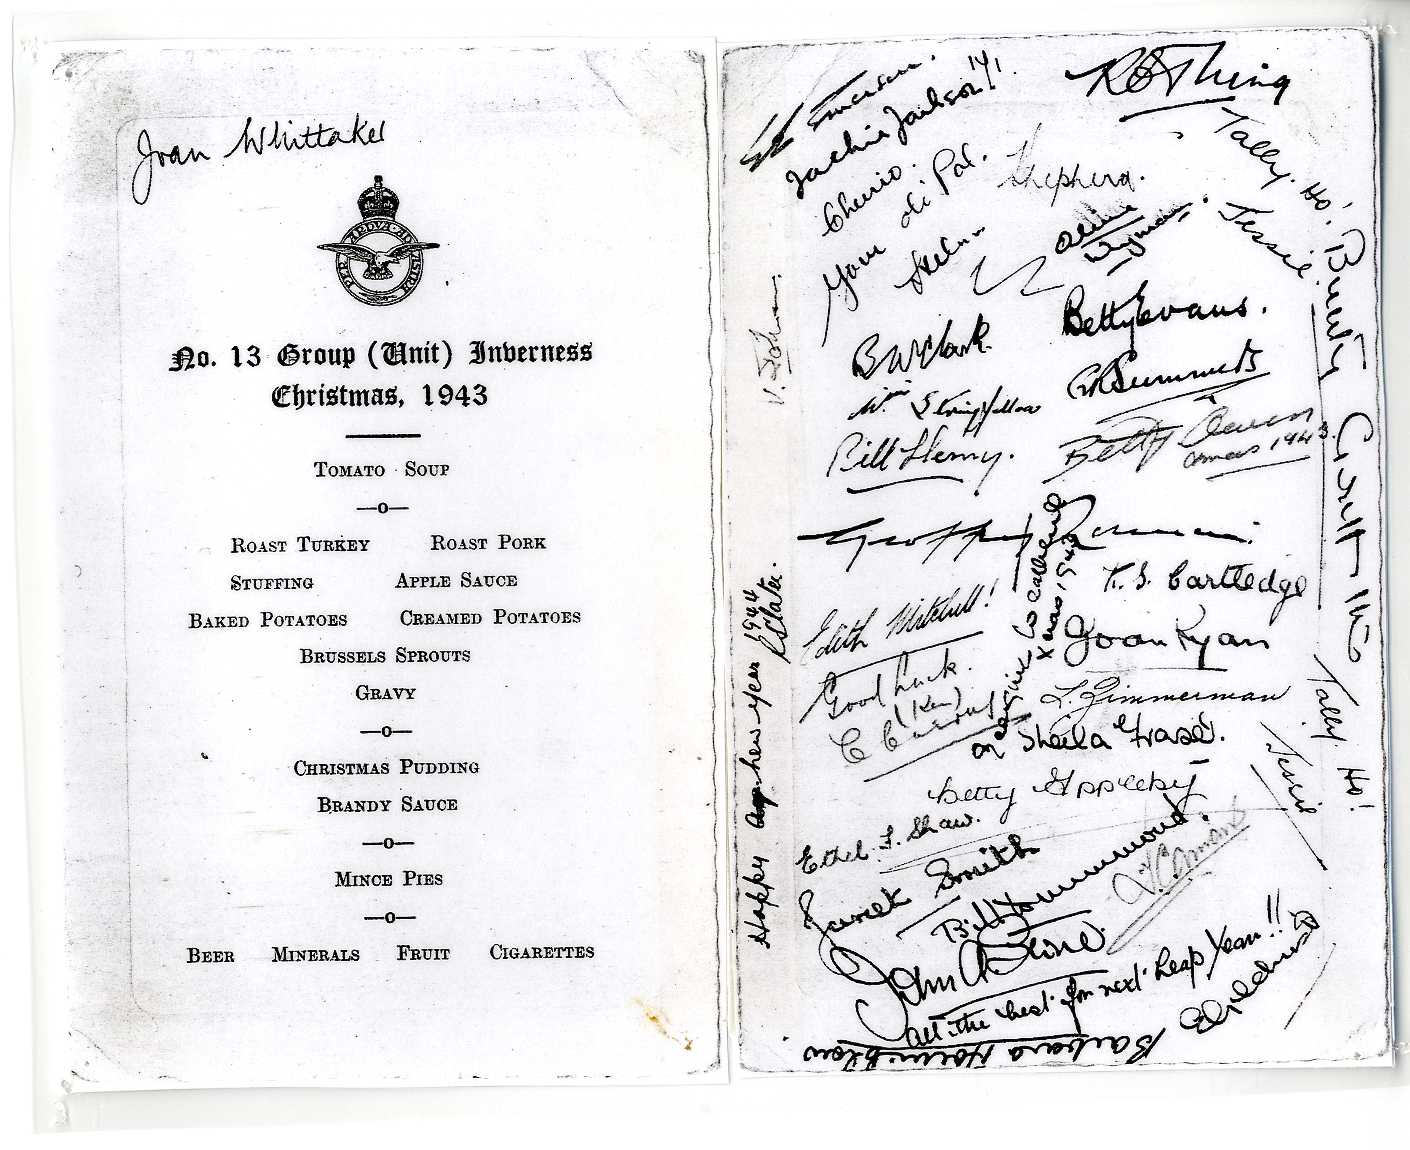 Joan Whittaker
PER ARDVA AD ASTRA
No. 13 Group (Unit) Inverness
Christmas, 1943
TOMATO SOUP
—o—
ROAST TURKEY ROAST PORK
STUFFING APPLE SAUCE
BAKED POTATOES CREAMED POTATOES
BRUSSELS SPROUTS
GRAVY
—o—
CHRISTMAS PUDDING
BRANDY SAUCE
—o—
MINCE PIES
—o—
BEER MINERALS FRUIT CIGARETTES
Emerson.
Jackie Jackson
Cheerio.
Your ole Pal.
Helen
Shepherd.
Tally Ho!
Jessie
Bunty
B W Clark.
Betty Evans.
Wm Stringfellow
Bill Henry.
Betty
Xmas 1943.
Geoffrey
Edith Mitchell!
T. S. Cartledge
Xmas 1943
Joan Ryan
Good Luck.
(Ken)
L. Zimmerman
Sheila Fraser.
Tally Ho!
Jessie
Betty Appleby
Ethel F. Shaw.
Janet Smith
Bill Hammond.
John
All the best for next Leap Year!!
Barbara
Happy New Year 1944